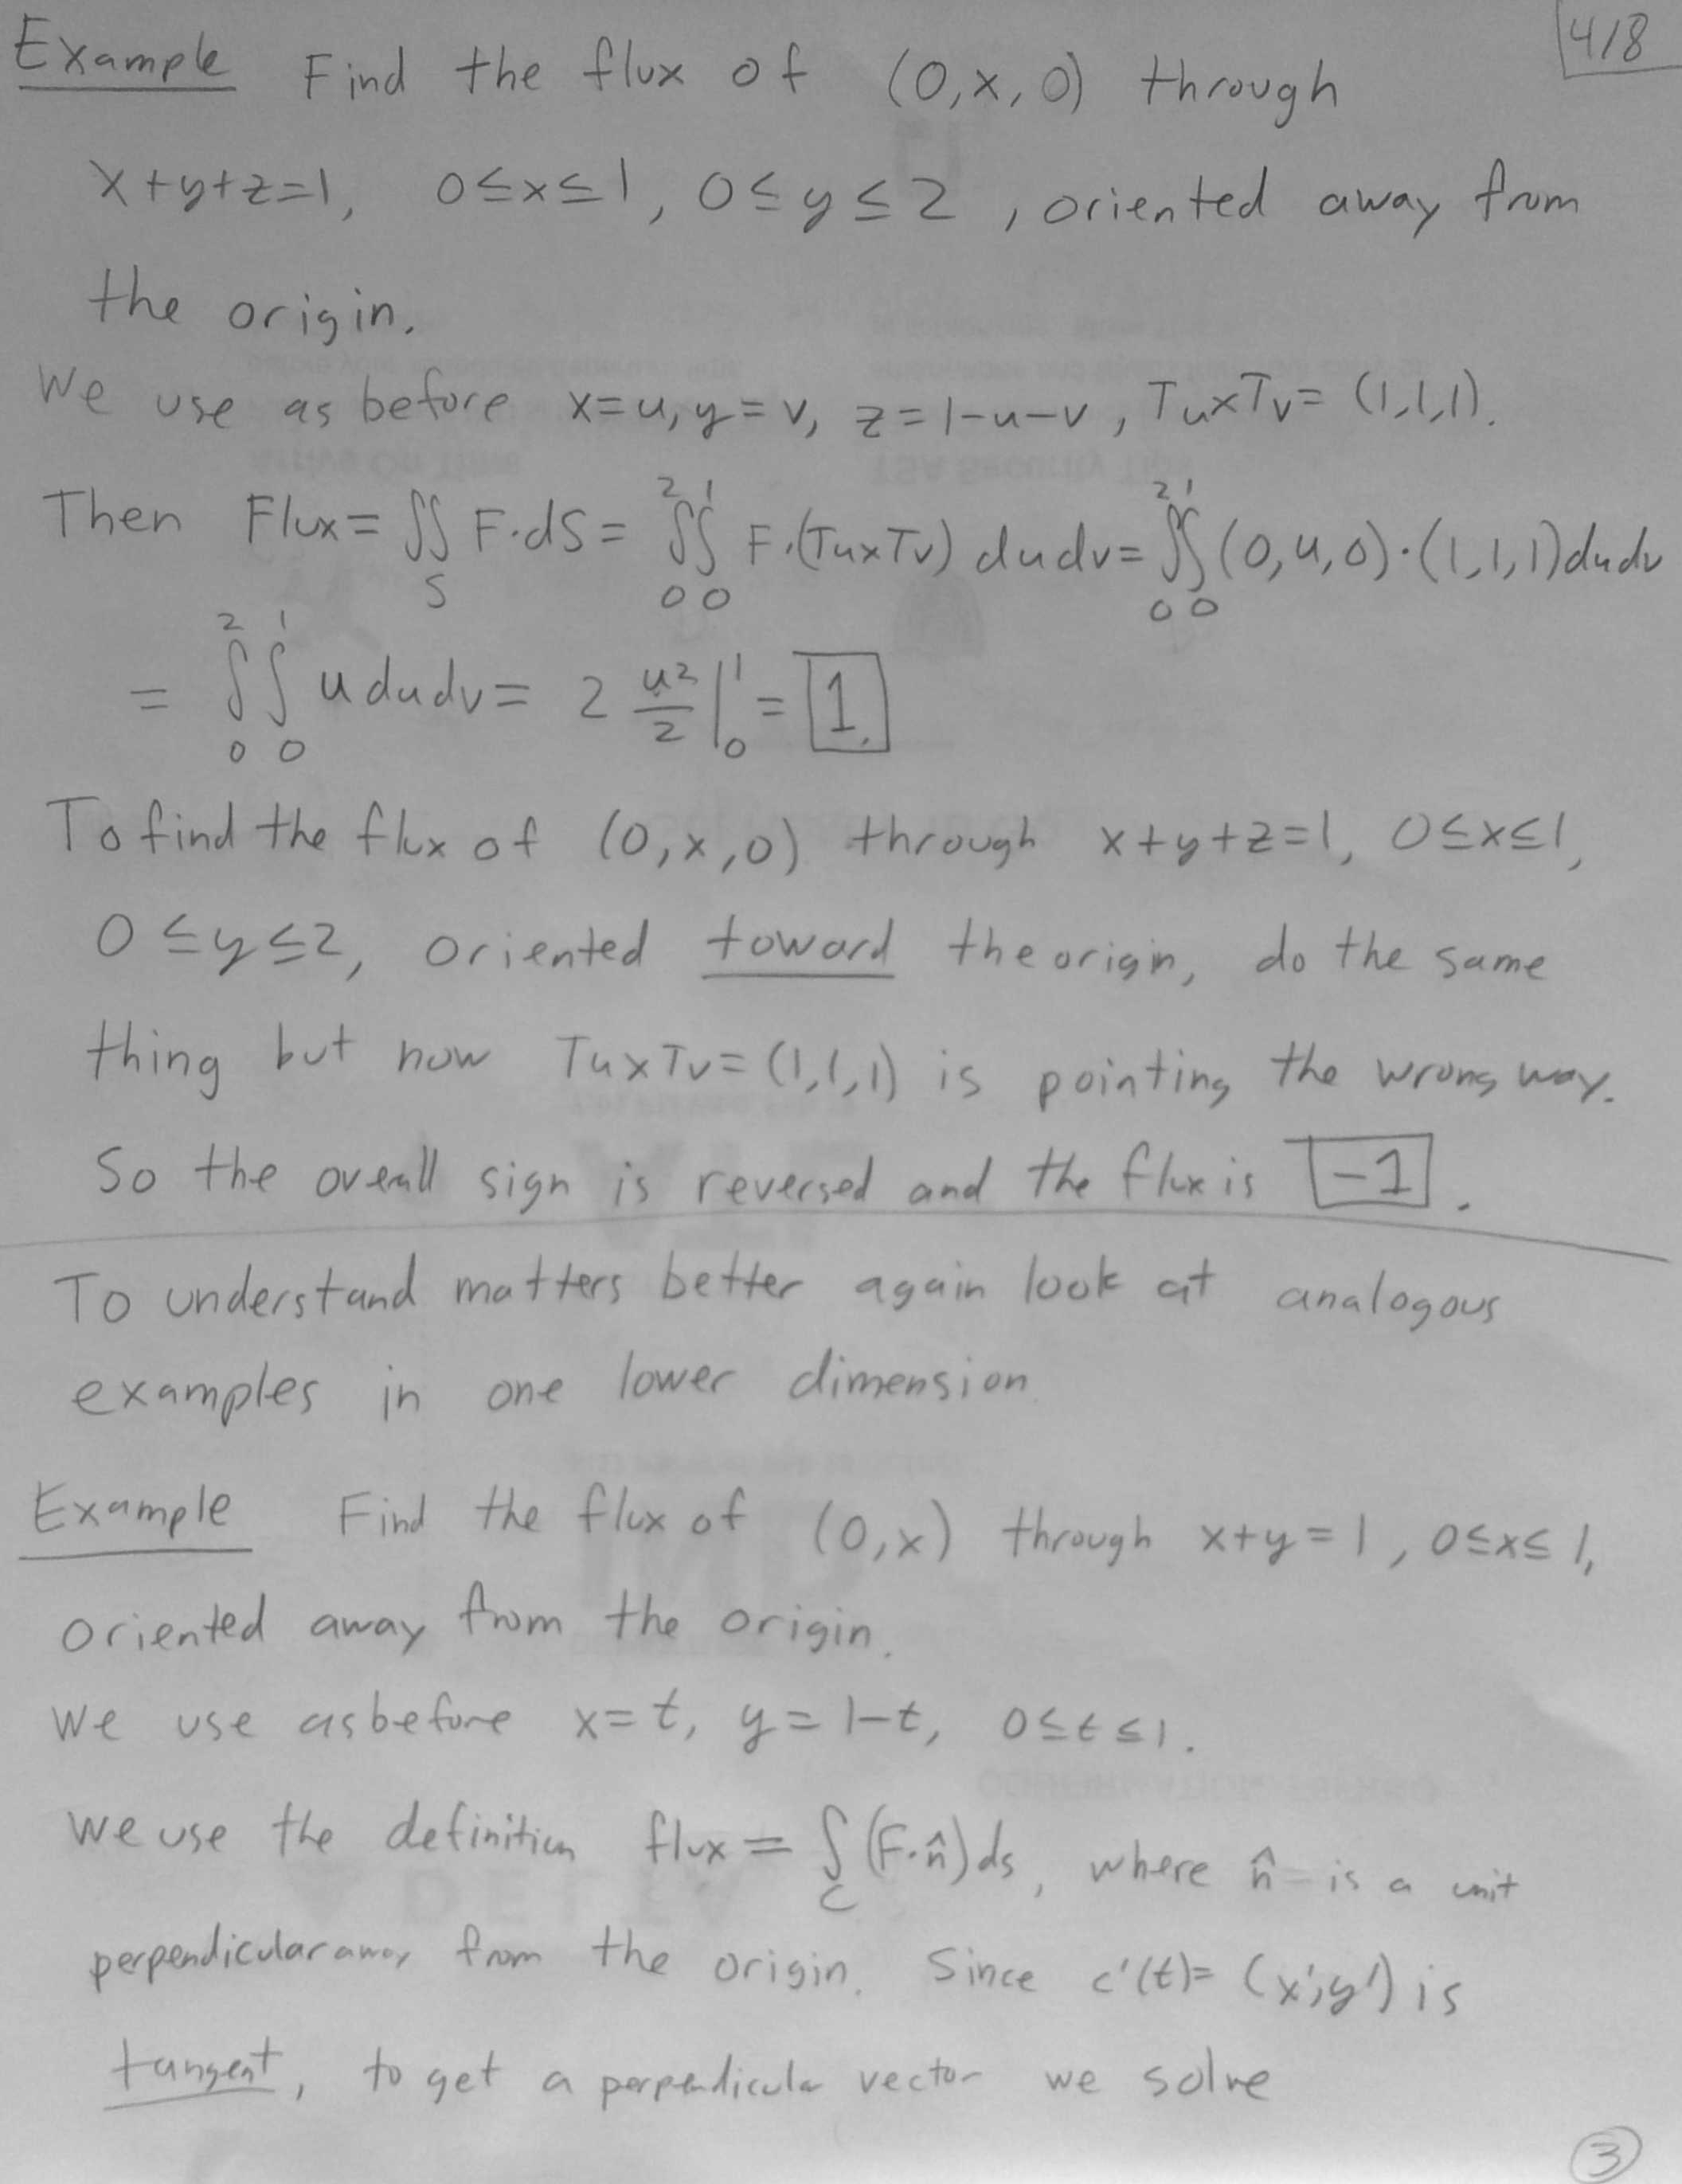 Example Find the flux of (0,x,0) through 4/8
x+y+z=1, 0≤x≤1, 0≤y≤2, oriented away from
the origin.
We use as before x=u, y=v, z=1-u-v, Tu×Tv= (1,1,1).
Then Flux= ∬_S F·dS = ∫_0^2 ∫_0^1 F·(Tu×Tv) dudv = ∫_0^2 ∫_0^1 (0,u,0)·(1,1,1)dudv
= ∫_0^2 ∫_0^1 u dudv = 2 u²/2 |_0^1 = 1.
To find the flux of (0,x,0) through x+y+z=1, 0≤x≤1,
0≤y≤2, oriented toward the origin, do the same
thing but now Tu×Tv= (1,1,1) is pointing the wrong way.
So the overall sign is reversed and the flux is -1.
To understand matters better again look at analogous
examples in one lower dimension.
Example Find the flux of (0,x) through x+y=1, 0≤x≤1,
oriented away from the origin.
We use as before x=t, y=1-t, 0≤t≤1.
We use the definition flux = ∫_C (F·n̂)ds, where n̂ is a unit
perpendicular away from the origin. Since c'(t)= (x',y') is
tangent, to get a perpendicular vector we solve
3